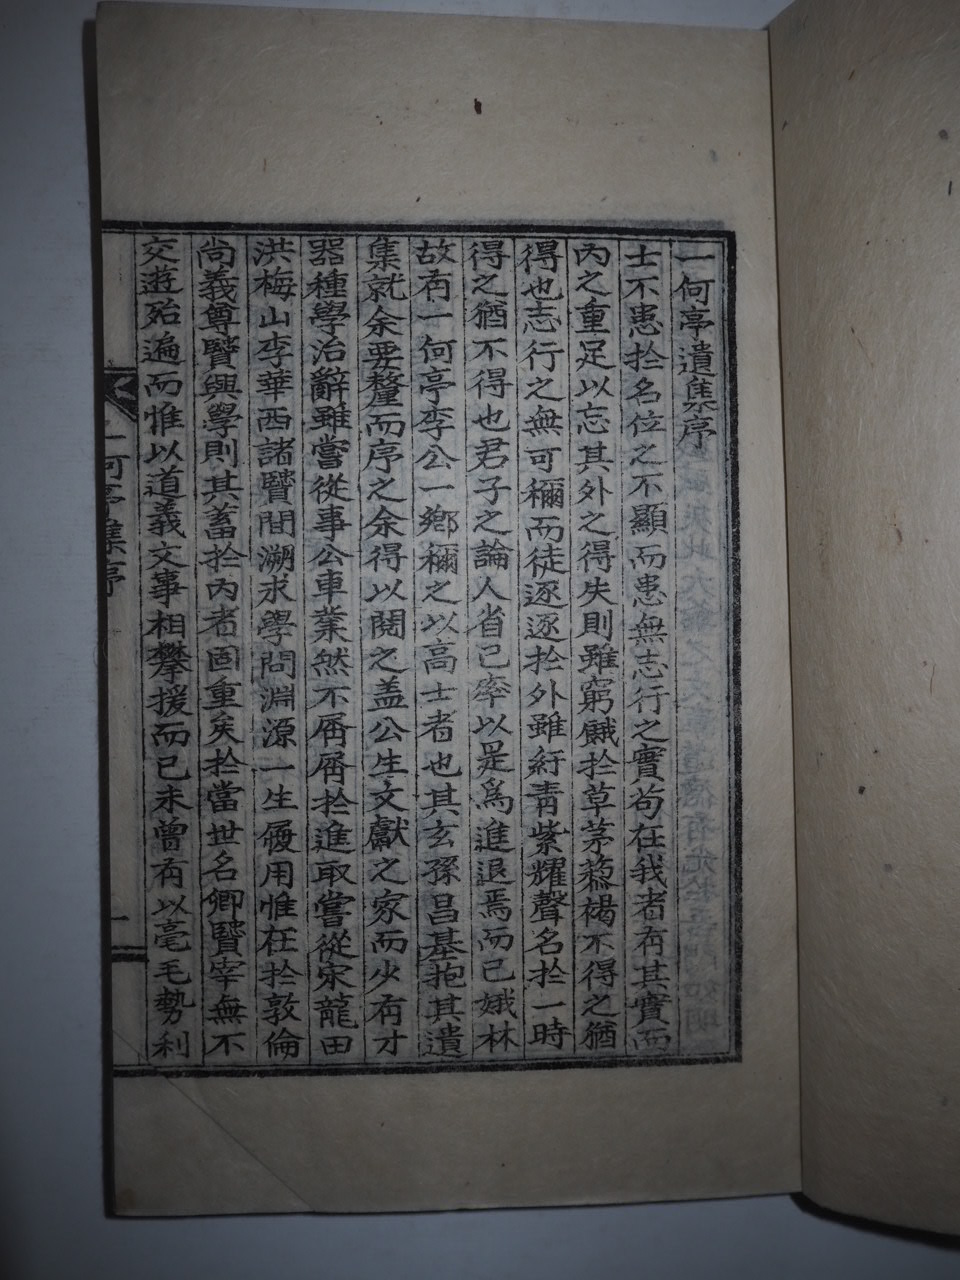 一何亭遺集序
士不患扵名位之不顯而患無志行之實苟在我者有其實而
內之重足以忘其外之得失則雖窮餓扵草茅蒸褐不得之猶
得也志行之無可稱而徒逐逐扵外雖紆靑紫耀聲名扵一時
得之猶不得也君子之論人省己率以是爲進退焉而已娥林
故有一何亭李公一鄕稱之以高士者也其玄孫昌基抱其遺
集就余要釐而序之余得以閱之盖公生文獻之家而少有才
器種學治辭雖嘗從事公車業然不屑屑扵進取嘗從宋龍田
洪梅山李華西諸賢間溯求學問淵源一生履用惟在扵敦倫
尙義尊賢興學則其蓄扵內者固重矣扵當世名卿賢宰無不
交遊殆遍而惟以道義文事相攀援而已未曾有以毫毛勢利
一何亭集序
一